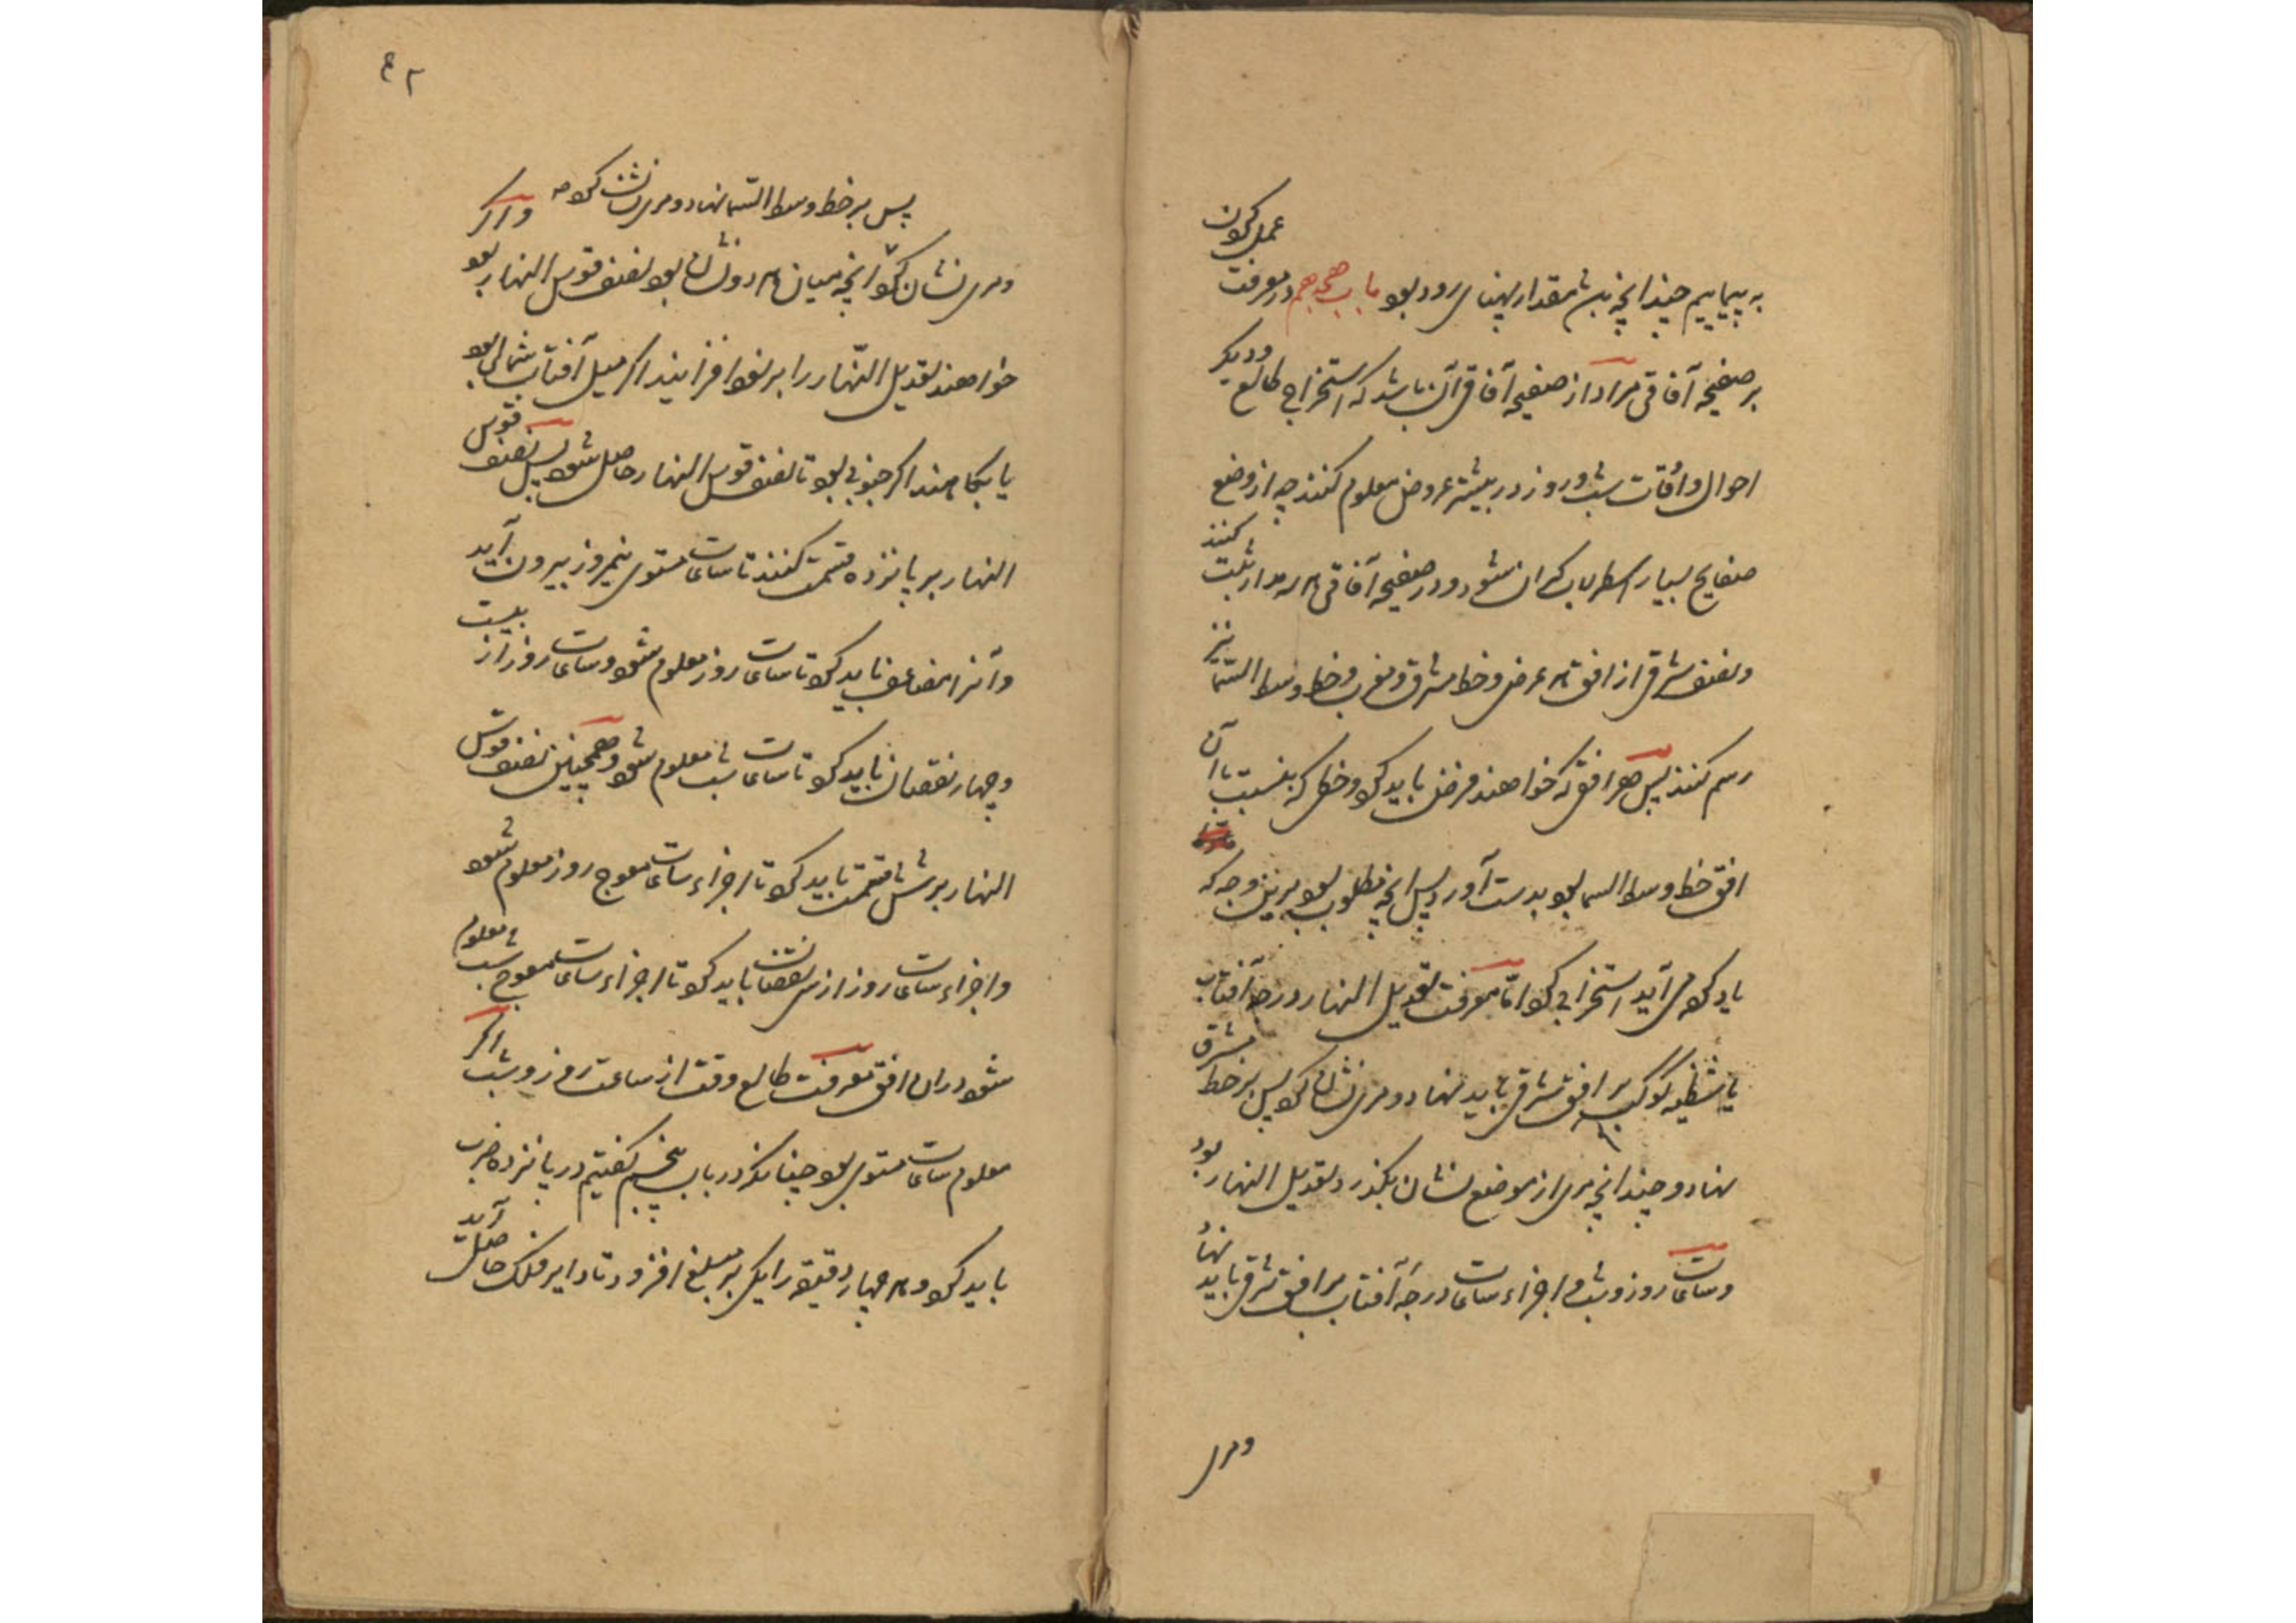 به پیماییم چندانچه بدین مقدار پهنای رود بود باب هجدهم در معرفت عمل کردن
بر صفیحه آفاقی مراد از صفیحه آفاقی آن باشد که استخراج طالع و دیگر
احوال و اوقات شب و روز در بیشتر عروض معلوم کنند چه از وضع
صفایح بسیار اسطرلاب گران شود و در صفیحه آفاقی مدار ثبت کنند
و نصف شرقی از افق هر عرض و خط مشرق و مغرب و خط وسط السما نیز
رسم کنند پس هر افق که خواهند فرض باید کرد و خطی که بنسبت با آن
افق خط وسط السما بود بدست آورد پس آنچه مطلوب بود برین وجه که
یاد کرده می آید استخراج کرد اما معرفت تعدیل النهار درجه آفتاب
یا شظیه کوکب بر افق شرقی باید نهاد و مری نشان کرد پس بر خط مشرق
نهاد و چندانچه مری از موضع نشان بگذرد تعدیل النهار بود
و ساعات روز و شب و اجزاء ساعات درجه آفتاب بر افق شرقی باید نهاد
و مری
۴۲
پس بر خط وسط السما نهاد و مری نشان کرده و اگر
و مری نشان کرد آنچه میان هر دو نشان بود نصف قوس النهار بود
خواهند تعدیل النهار را بر نود افزایند اگر میل آفتاب شمالی بود
یا بکاهند اگر جنوبی بود تا نصف قوس النهار حاصل شود پس نصف قوس
النهار بر پانزده قسمت کنند تا ساعات مستوی نیمروز بیرون آید
و آنرا مضاعف باید کرد تا ساعات روز معلوم شود و ساعات روز از بیست
و چهار نقصان باید کرد تا ساعات شب معلوم شود و همچنین نصف قوس
النهار بر شش قسمت باید کرد تا اجزاء ساعات معوج روز معلوم شود
و اجزاء ساعات روز از سی نقصان باید کرد تا اجزاء ساعات معوج شب معلوم
شود در آن افق معرفت طالع وقت از ساعت روز و شب اگر
معلوم ساعات مستوی بود چنانکه در باب پنجم گفتیم در پانزده ضرب
باید کرد و هر چهار دقیقه را یکی بر مبلغ افزود تا دایر فلک حاصل آید